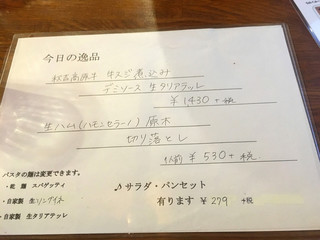 今日の逸品
秋吉高原牛 牛スジ煮込み
デミソース 生タリアテッレ
¥1430 +税
生ハム(ハモンセラーノ) 原木
切り落とし
1人前 ¥530+税
パスタの麺は変更できます。
・乾 麺 スパゲッティ
・自家製 生リングイネ
・自家製 生タリアテッレ
♪サラダ・パンセット
有ります ¥279 +税